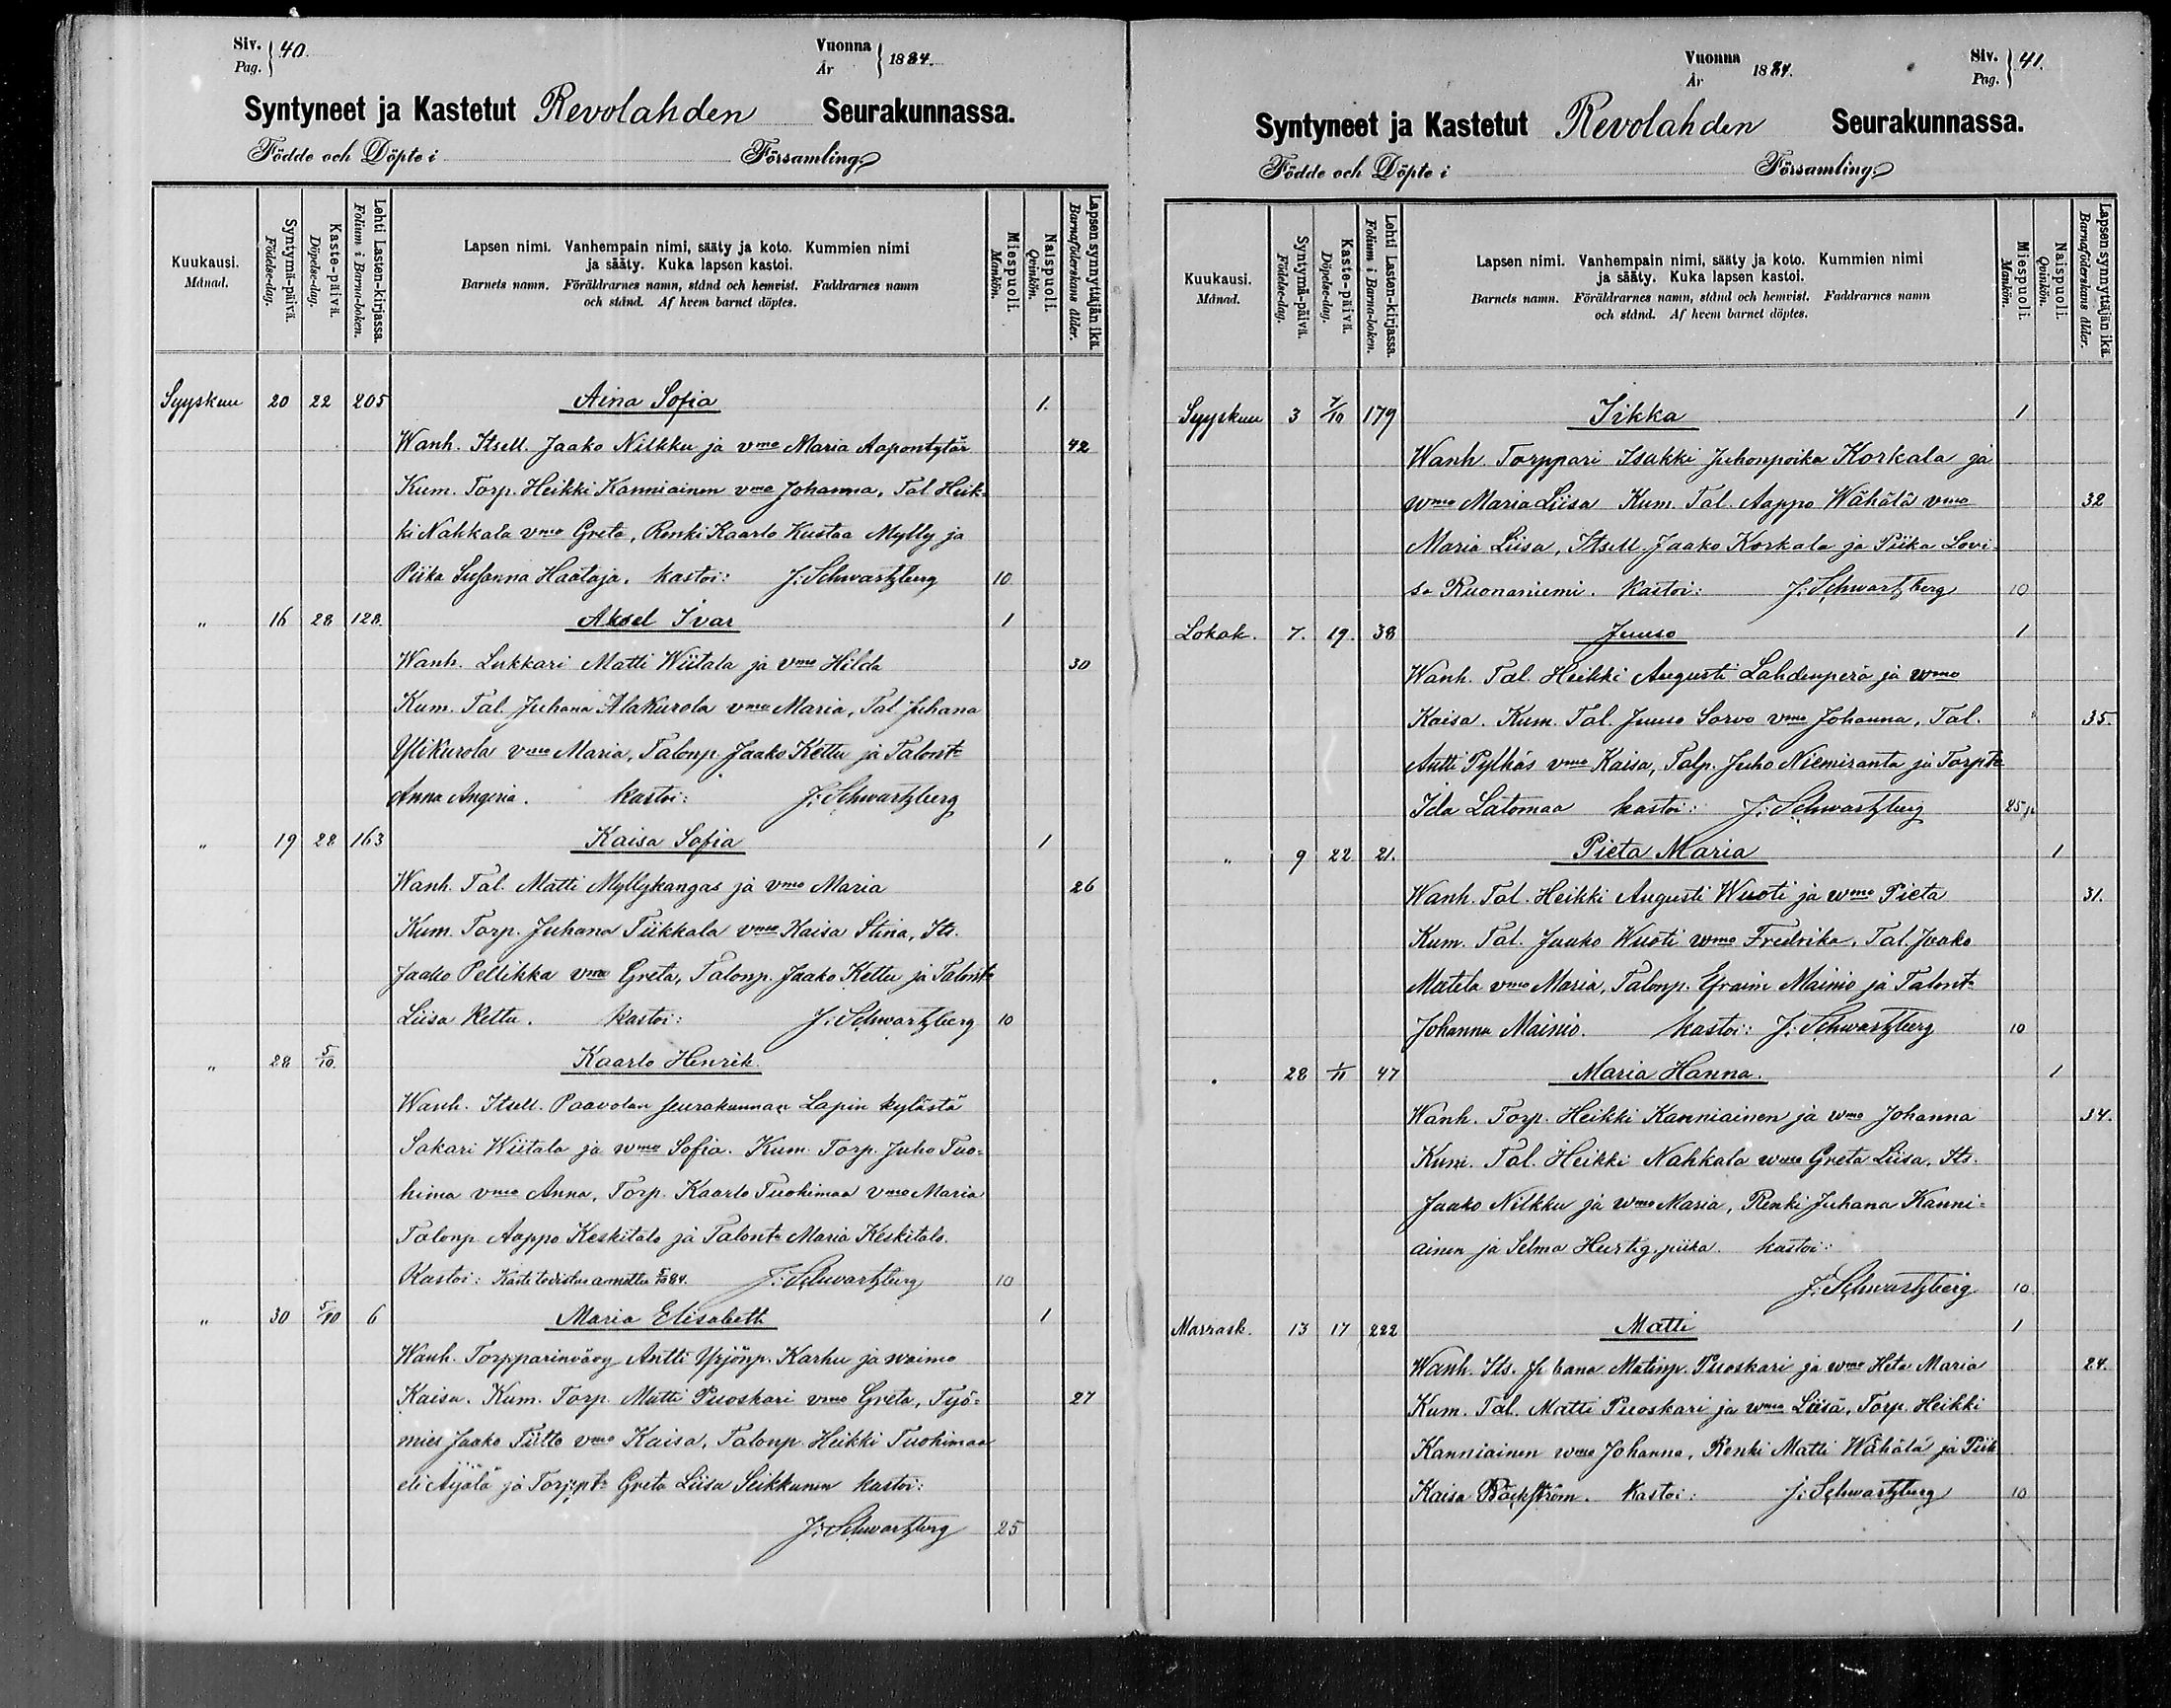 Siv. Pag. 40. Vuonna År 1884.
Syntyneet ja Kastetut Revolahden Seurakunnassa.
Födde och Döpte i Församling.
Kuukausi. Månad.
Syntymä-päivä. Födelse-dag.
Kaste-päivä. Döpelse-dag.
Lehti Lasten-kirjassa. Folium i Barna-boken.
Lapsen nimi. Vanhempain nimi, sääty ja koto. Kummien nimi
ja sääty. Kuka lapsen kastoi.
Barnets namn. Föräldrarnes namn, stånd och hemvist. Faddrarnes namn
och stånd. Af hvem barnet döptes.
Miespuoli. Mankön.
Naispuoli. Qvinkön.
Lapsen synnyttäjän ikä. Barnaföderskans ålder.
Syyskuu 20 22 205 Aina Sofia 1.
Wanh. Itsell. Jaako Nilkku ja vmo Maria Aapontytär 42
Kum. Torp. Heikki Kanniainen vmo Johanna, Tal. Heik-
ki Nahkala vmo Greta, Renki Kaarlo Kustaa Mylly ja
Piika Susanna Haataja. kastoi: J. Schwartzberg 10
" 16 28 128. Aksel Ivar 1
Wanh. Lukkari Matti Wiitala ja vmo Hilda 30
Kum. Tal. Juhana Alakurola vmo Maria, Tal Juhana
Ylikurola vmo Maria, Talonp. Jaako Kettu ja Talont.
Anna Angeria. kastoi: J. Schwartzberg
" 19 28 163 Kaisa Sofia 1
Wanh. Tal. Matti Myllykangas ja vmo Maria 26
Kum. Torp. Juhana Tiikkala vmo Kaisa Stina, Its.
Jaako Pellikka vmo Greta, Talonp. Jaako Kettu ja Talont.
Liisa Kettu. kastoi: J. Schwartzberg 10
" 28 5/10. Kaarlo Henrik.
Wanh. Itsell. Paavolan seurakunnan Lapin kylästä
Sakari Wiitala ja wmo Sofia. Kum. Torp. Juho Tuo-
hima vmo Anna, Torp. Kaarlo Tuohimaa vmo Maria
Talonp. Aappo Keskitalo ja Talont. Maria Keskitalo.
Kastoi: Kastetodistus annettu 5/10 84. J. Schwartzberg 10
" 30 5/10 6 Maria Elisabeth 1
Wanh. Torpparinvävy Antti Yrjönp. Karhu ja waimo
Kaisa. Kum. Torp. Matti Puoskari vmo Greta, Työ- 27
mies Jaako Tiitto vmo Kaisa, Talonp. Heikki Tuohimaa
eli Äijälä ja Torppt. Greta Liisa Seikkunen kastoi:
J. Schwartzberg 25
Vuonna År 1884. Siv. Pag. 41.
Syntyneet ja Kastetut Revolahden Seurakunnassa.
Födde och Döpte i Församling.
Kuukausi. Månad.
Syntymä-päivä. Födelse-dag.
Kaste-päivä. Döpelse-dag.
Lehti Lasten-kirjassa. Folium i Barna-boken.
Lapsen nimi. Vanhempain nimi, sääty ja koto. Kummien nimi
ja sääty. Kuka lapsen kastoi.
Barnets namn. Föräldrarnes namn, stånd och hemvist. Faddrarnes namn
och stånd. Af hvem barnet döptes.
Miespuoli. Mankön.
Naispuoli. Qvinkön.
Lapsen synnyttäjän ikä. Barnaföderskans ålder.
Syyskuu 3 7/10 179 Iikka 1
Wanh. Torppari Isakki Juhonpoika Korkala ja
wmo Maria Liisa Kum. Tal. Aappo Wähälä vmo 32
Maria Liisa, Itsell. Jaako Korkala ja Piika Lovi-
sa Ruonaniemi. Kastoi: J. Schwartzberg 10
Lokak. 7. 19. 38 Juuso 1
Wanh. Tal. Heikki Augusti Lahdenperä ja wmo
Kaisa. Kum. Tal. Juuso Sarvo vmo Johanna, Tal. 35.
Antti Pylhäs vmo Kaisa, Talp. Juho Niemiranta ja Torpt.
Ida Latomaa kastoi: J. Schwartzberg 25 p.
" 9 22 21. Pieta Maria 1
Wanh. Tal. Heikki Augusti Wuoti ja wmo Pieta 31.
Kum. Tal. Jaako Wuoti wmo Fredrika, Tal. Jaako
Matela vmo Maria, Talonp. Efraim Mainio ja Talont.
Johanna Mainio. kastoi: J. Schwartzberg 10
" 28 1/11 47 Maria Hanna. 1
Wanh. Torp. Heikki Kanniainen ja wmo Johanna 34.
Kum. Tal. Heikki Nahkala wmo Greta Liisa, Its.
Jaako Nilkku ja wmo Maria, Renki Juhana Kanni-
ainen ja Selma Hurtig, piika. kastoi:
J. Schwartzberg 10.
Marrask. 13 17 222 Matti 1
Wanh. Its. Juhana Matinp. Puoskari ja wmo Heta Maria 24.
Kum. Tal. Matti Puoskari ja wmo Liisa, Torp. Heikki
Kanniainen wmo Johanna, Renki Matti Wähälä ja Piik
Kaisa Bäckström. Kastoi: J. Schwartzberg 10